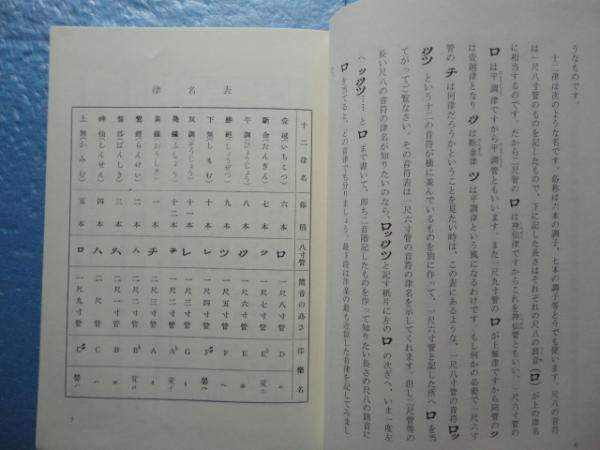 うなものです。
十二律は次のような名です。俗称は六本の調子、七本の調子等とようでも使います。尺八の音符
は一尺八寸管のものを記したもので、下に記した長さはそれぞれの尺八の筒音(ロ)が上の律名
に相当するのです。だから二尺管のロは神仙律ですからこれを神仙管ともいい、一尺六寸管の
ロは平調律ですから平調管ともいいます。また一尺九寸管のロが上無律ですから同管のッ
は壱越律となり は断金律 ツは平調律という風になるわけです。もし何かの必要で一尺六寸
管のチは何律だろうかということを見たい時は、この表にあるような、一尺八寸管の音符ロッ
ツという十二の音符が横に並んでいるものを別に作って、一尺六寸管と記した所へロを当
てがってご覧なさい。その音符表は一尺六寸管の音符の律名を示してくれます。但し二尺管等の
長い尺八の音符の律名が知りたいのなら、ロッツと記す紙片に左のロの次ぎへ、いま一度左
へッツ…とロまで書いて、即ち二音階記したものを作って知りたい長さの尺八の筒音に
ロを当てると、どの音律でも分りましょう。最下段は洋楽の最も近似した音律を記してみまし
律名表
十二律名 俗称 八寸管 筒音の高さ 洋楽名
壱越(いちこつ) 六本 ロ 一尺八寸管 D ニ
断金(たんぎん) 七本 ッ 一尺七寸管 E♭ 変ホ
平調(ひょうじょう) 八本 一尺六寸管 E ホ
勝絶(しょうぜつ) 九本 ツ 一尺五寸管 F ヘ
下無(しもむ) 十本 レ 一尺四寸管 F♯ 嬰ヘ
双調(そうじょう) 十一本 レ 一尺三寸管 G ト
鳧鐘(ふしょう) 十二本 一尺二寸管 A♭ 変イ
黄鐘(おうしき) 一本 チ 二尺三寸管 A イ
鸞鏡(らんけい) 二本 二尺二寸管 B♭
盤渉(ばんしき) 三本 二尺一寸管 B ロ
神仙(しんせん) 四本 二尺管 C ハ
上無(かみむ) 五本 一尺九寸管 C♯ 嬰ハ
7